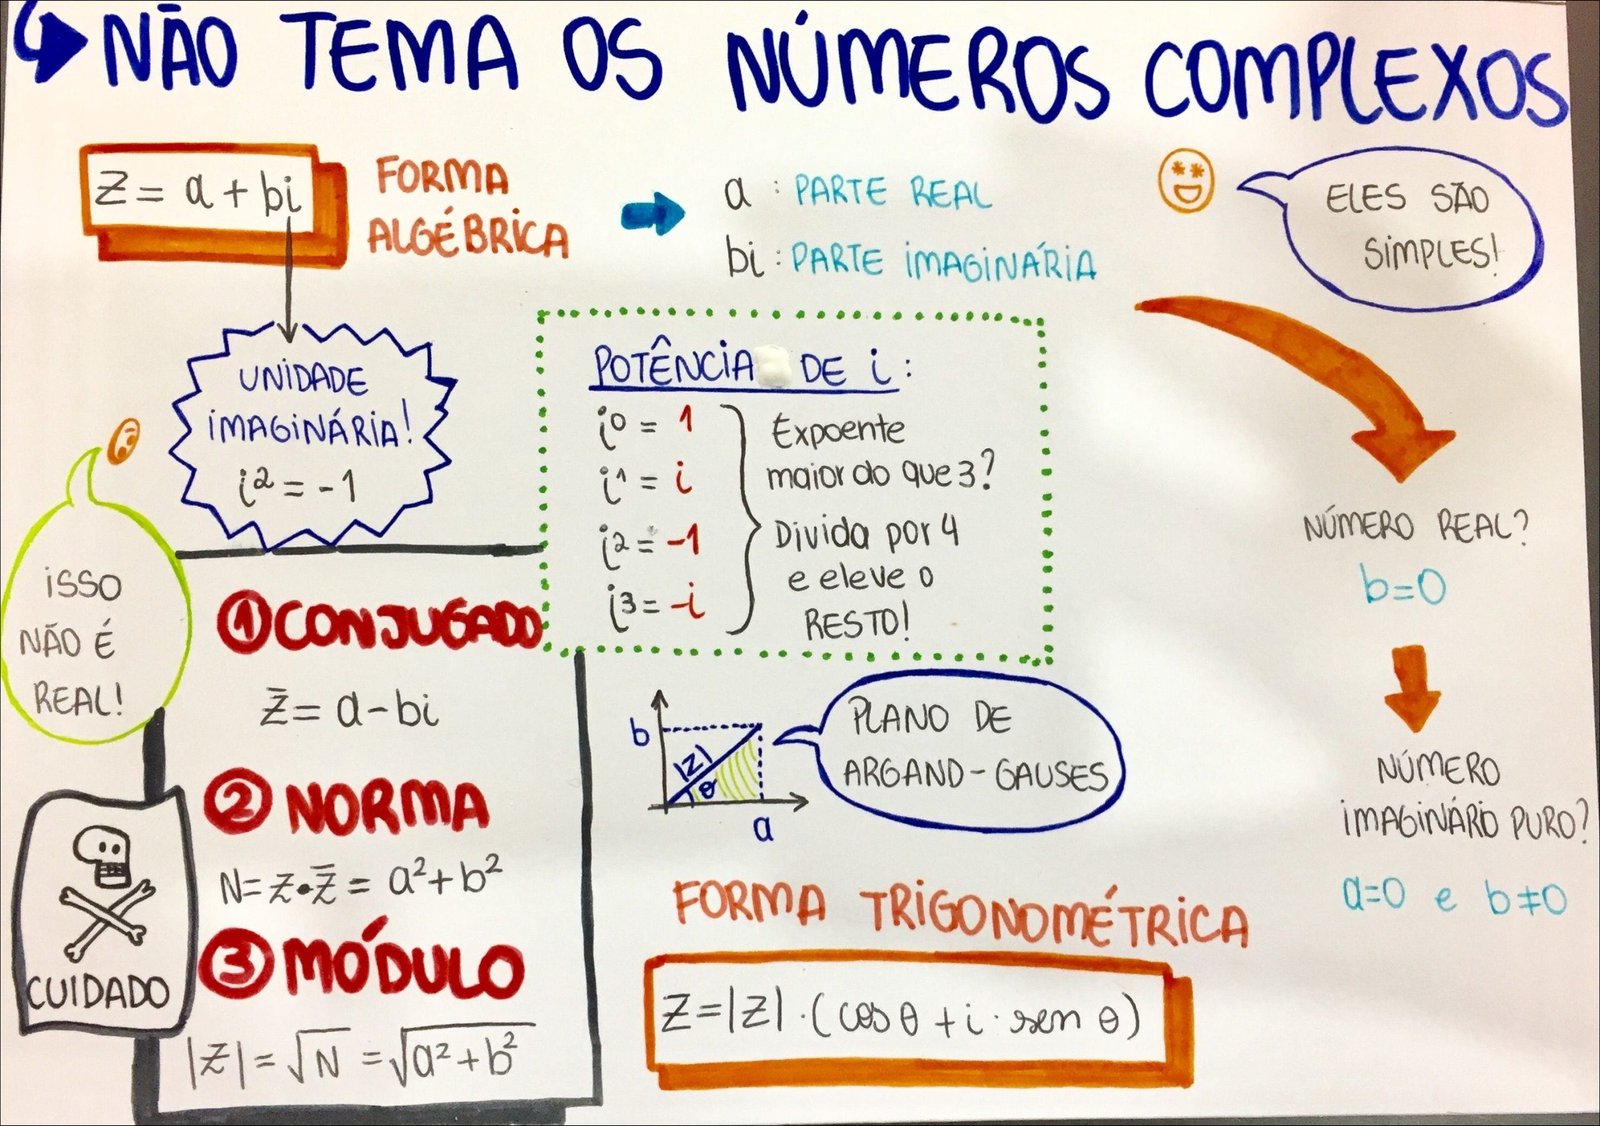 NÃO TEMA OS NÚMEROS COMPLEXOS
z = a + bi
FORMA
ALGÉBRICA
a : PARTE REAL
bi : PARTE IMAGINÁRIA
ELES SÃO
SIMPLES!
UNIDADE
IMAGINÁRIA!
i² = -1
ISSO
NÃO É
REAL!
POTÊNCIA DE i :
i⁰ = 1
i¹ = i
i² = -1
i³ = -i
Expoente
maior do que 3?
Divida por 4
e eleve o
RESTO!
NÚMERO REAL?
b=0
NÚMERO
IMAGINÁRIO PURO?
a=0 e b≠0
① CONJUGADO
z̄ = a - bi
② NORMA
N = z • z̄ = a² + b²
③ MÓDULO
|z| = √N = √a² + b²
CUIDADO
b
|z|
θ
a
PLANO DE
ARGAND-GAUSES
FORMA TRIGONOMÉTRICA
z = |z| · (cos θ + i · sen θ)